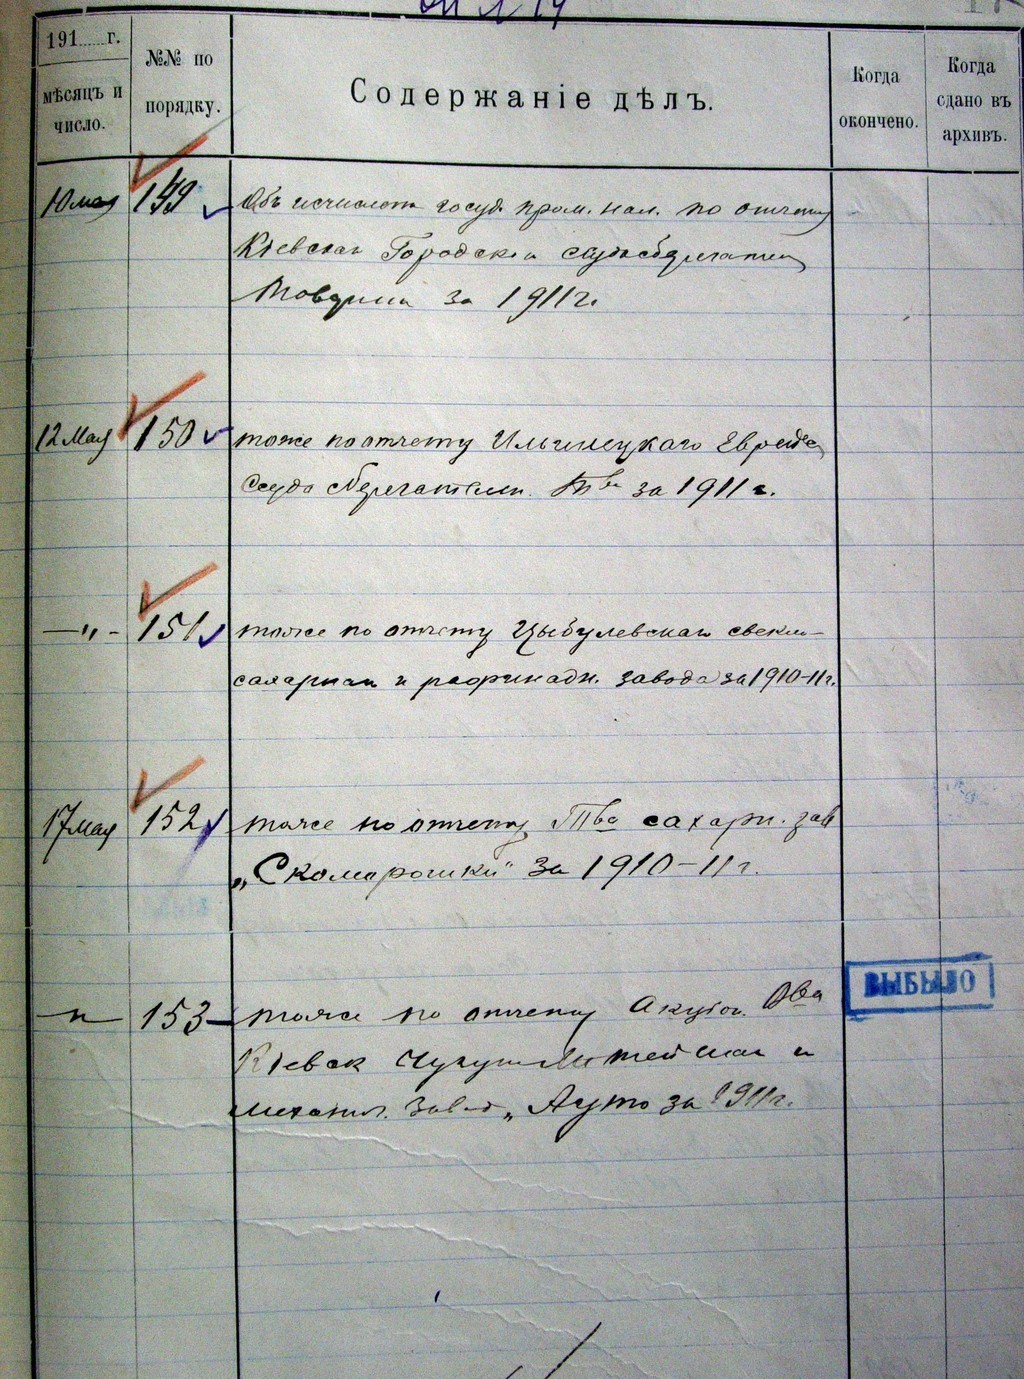 191......г.
мѣсяцъ и
число.
№№ по
порядку.
Содержаніе дѣлъ.
Когда
окончено.
Когда
сдано въ
архивъ.
10 мая 149 Объ исчислен госуд. пром. нал. по отчету
Кіевскаг Городского ссудосберегател
за 1911 г.
12 Мая 150 тоже по отчету Ильинецкаго Еврейс
Ссудо сберегательн. Тва за 1911 г.
—"- 151 тоже по отчету Цыбулевскаго свекло-
сахарнаг и рафинадн. завода за 1910-11 г.
17 мая 152 тоже по отчету Тва сахарн. зав
„Скоморошки" за 1910-11 г.
—"— 153 тоже по отчету Акціон. Ова
Кіевск Чугуно Литейнаг и
механич. завод „Ауто за 1911 г.
ВЫБЫЛО